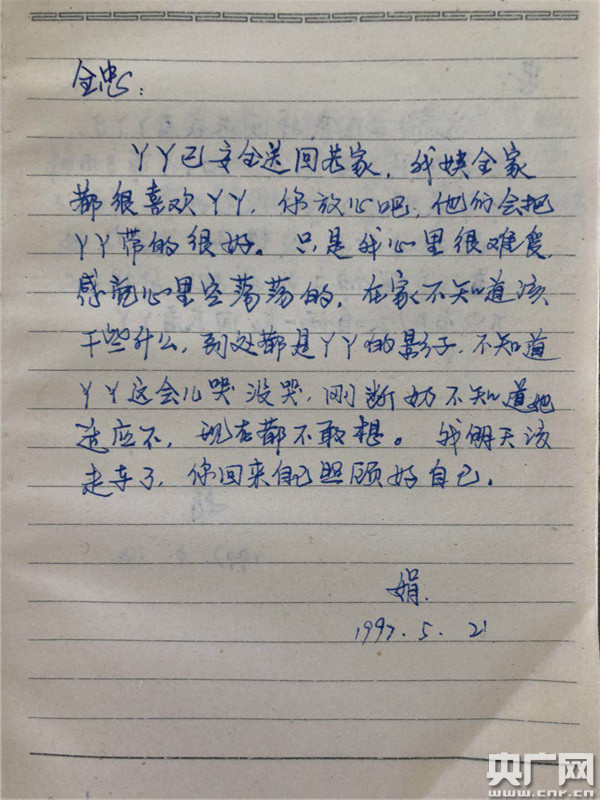 全忠：
丫丫已安全送回老家，我姨全家
都很喜欢丫丫，你放心吧，他们会把
丫丫带的很好。只是我心里很难受
感觉心里空荡荡的，在家不知道该
干些什么，到处都是丫丫的影子，不知道
丫丫这会儿哭没哭，刚断奶不知道她
适应不，现在都不敢想。我明天该
走车了，你回来自己照顾好自己。
娟.
1997.5.21
央广网
www.cnr.cn